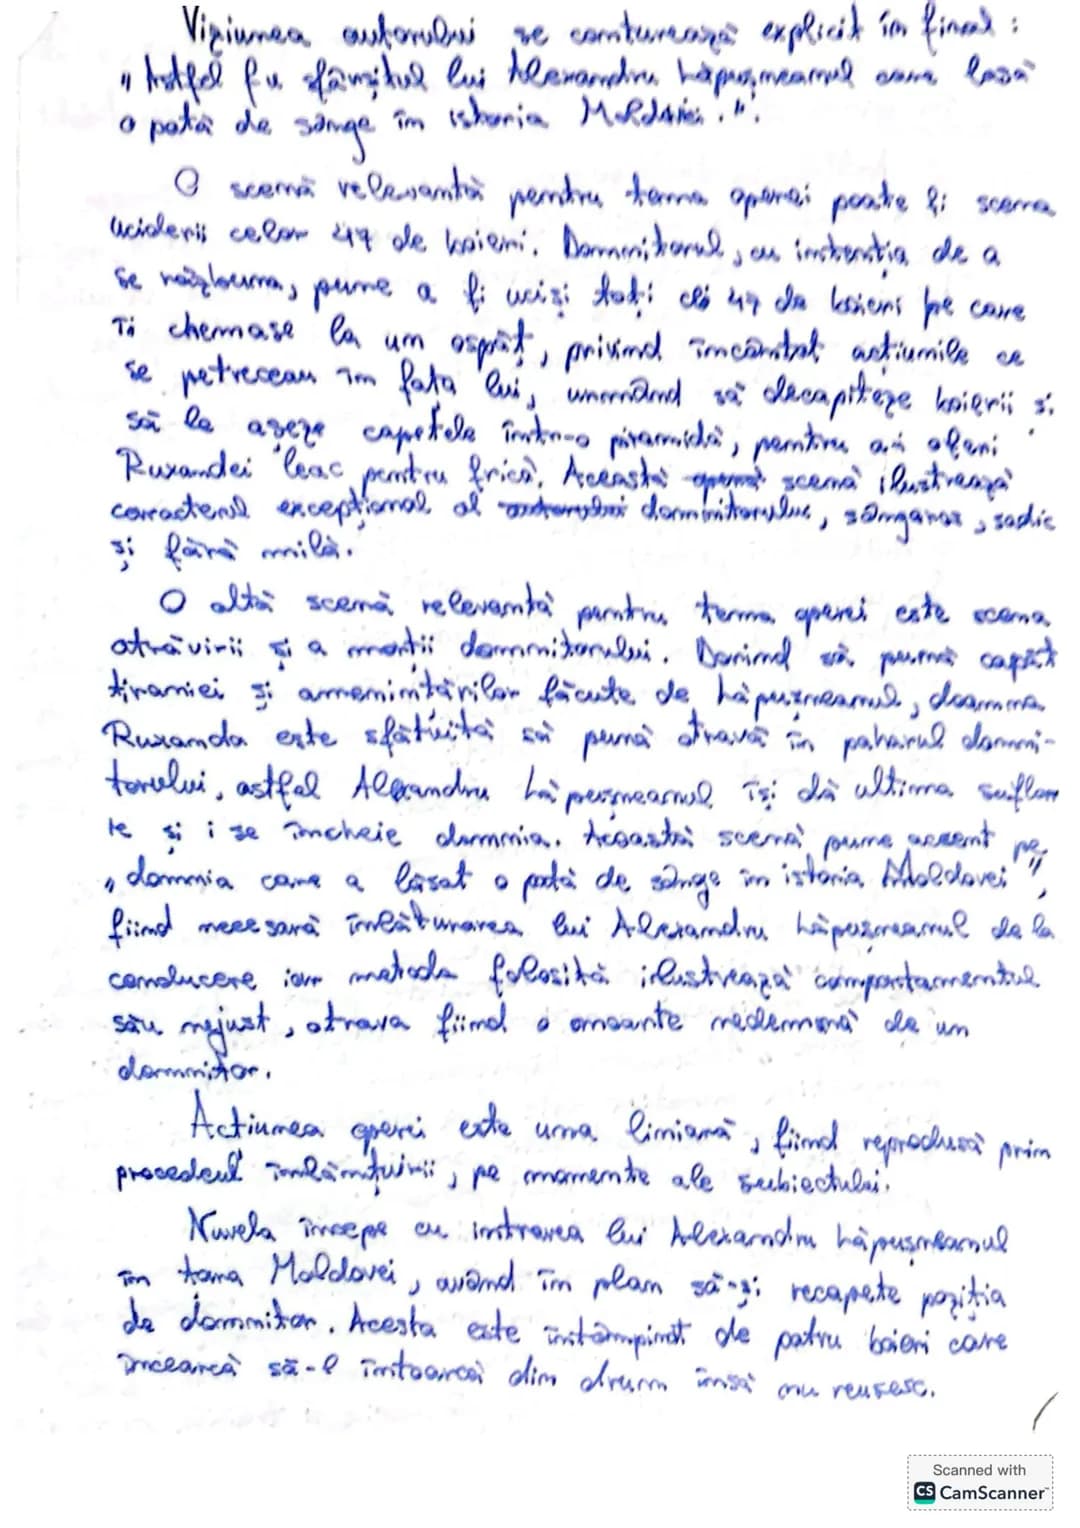 Viziunea autorului se conturează explicit în final:
"Astfel fu sfârșitul lui Alexandru Lăpușneanul care lasă
o pată de sânge în istoria Moldovei.".
O scenă relevantă pentru tema operei poate fi scena
uciderii celor 47 de boieri. Domnitorul, cu intenția de a
se răzbuna, pune a fi uciși toți cei 47 de boieri pe care
îi chemase la un ospăț, privind încântat acțiunile ce
se petreceau în fața lui, urmând să decapiteze boierii și
să le așeze capetele într-o piramidă, pentru a-i oferi
Ruxandei leac pentru frică. Această scenă ilustrează
caracterul excepțional al domnitorului, sângeros, sadic
și fără milă.
O altă scenă relevantă pentru tema operei este scena
otrăvirii și a morții domnitorului. Dorind să pună capăt
tiraniei și amenințărilor făcute de Lăpușneanul, doamna
Ruxanda este sfătuită să pună otravă în paharul domni-
torului, astfel Alexandru Lăpușneanul își dă ultima suflare
te și i se încheie domnia. Această scenă pune accent pe
"domnia care a lăsat o pată de sânge în istoria Moldovei",
fiind necesară înlăturarea lui Alexandru Lăpușneanul de la
conducere iar metoda folosită ilustrează comportamentul
său nejust, otrava fiind o moarte nedemnă de un
domnitor.
Acțiunea operei este una liniară, fiind reprodusă prin
procedeul înlănțuirii, pe momente ale subiectului.
Nuvela începe cu intrarea lui Alexandru Lăpușneanul
în țara Moldovei, având în plan să-și recapete poziția
de domnitor. Acesta este întâmpinat de patru boieri care
încearcă să-l întoarcă din drum însă nu reușesc.
Scanned with
CS CamScanner